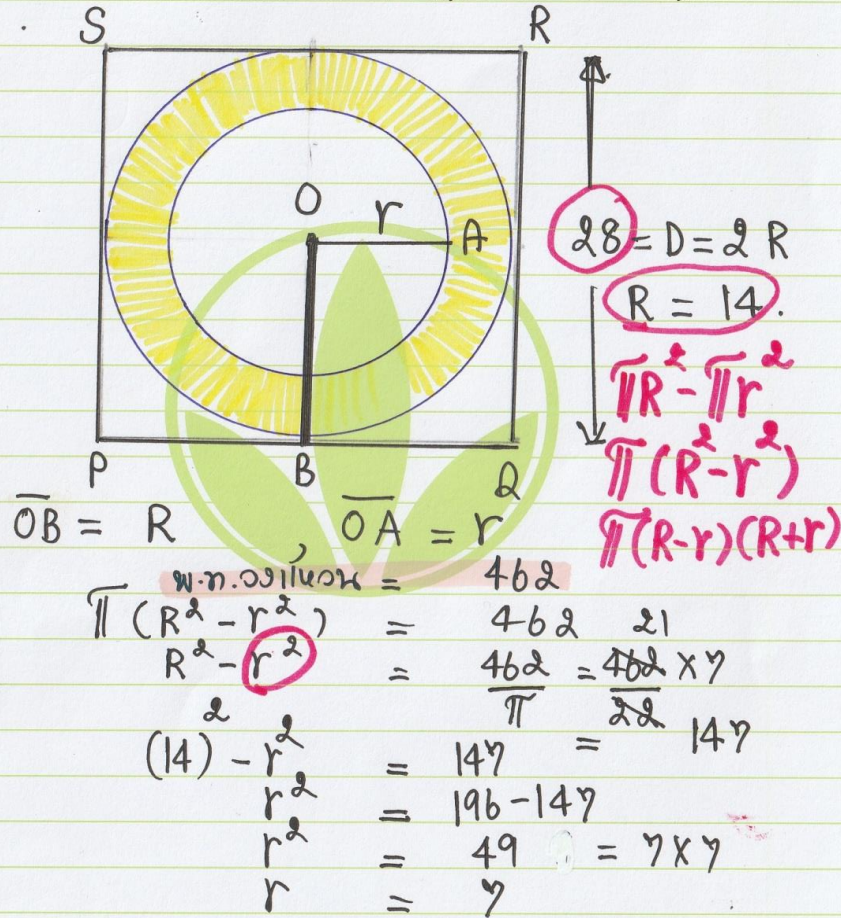 S R
O r A
28 = D = 2 R
R = 14.
πR² - πr²
π(R² - r²)
π(R-r)(R+r)
P B Q
OB̅ = R , OA̅ = r
พ.ท.วงแหวน = 462
π(R² - r²) = 462 21
R² - r² = 462/π = 462/22 × 7
= 147
(14)² - r² = 147
r² = 196 - 147
r² = 49 = 7 × 7
r = 7